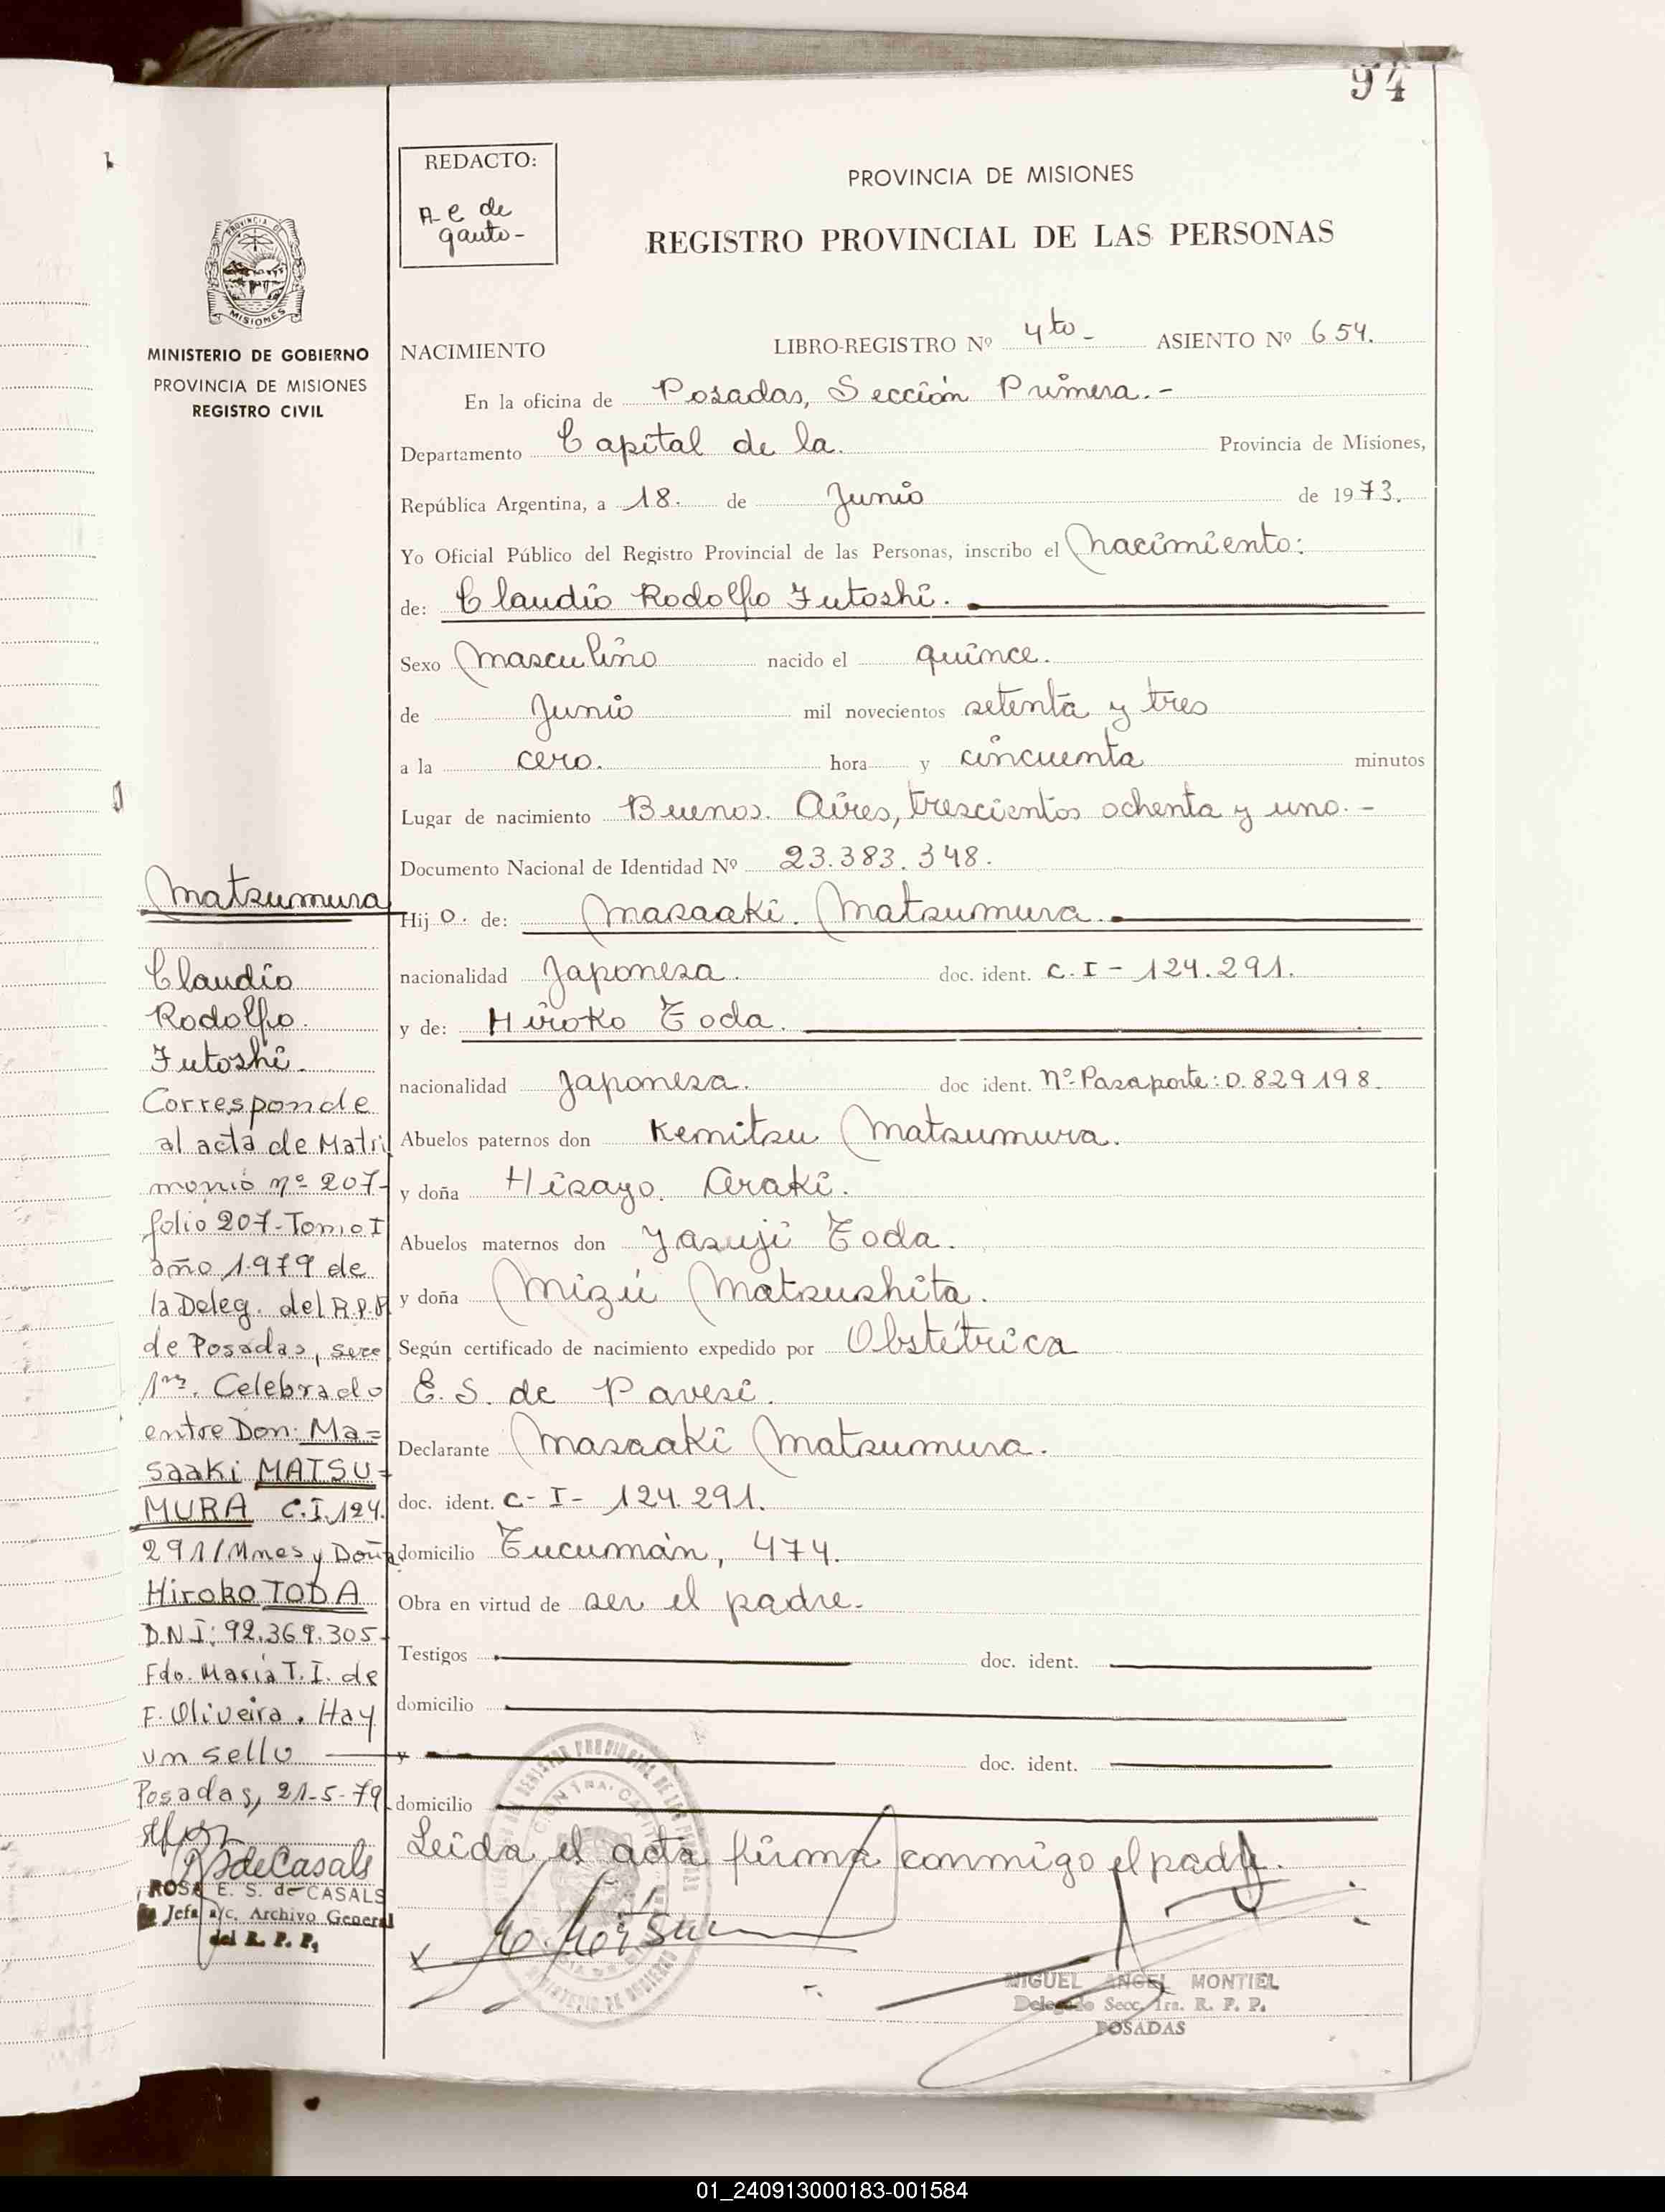 94
REDACTO:
A e de
gauto-
PROVINCIA DE MISIONES
REGISTRO PROVINCIAL DE LAS PERSONAS
PROVINCIA DE
MISIONES
MINISTERIO DE GOBIERNO
PROVINCIA DE MISIONES
REGISTRO CIVIL
NACIMIENTO LIBRO-REGISTRO Nº 4to- ASIENTO Nº 654.
En la oficina de Posadas, Sección Primera.-
Departamento Capital de la Provincia de Misiones,
República Argentina, a 18. de Junio de 1973.
Yo Oficial Público del Registro Provincial de las Personas, inscribo el Nacimiento:
de: Claudio Rodolfo Futoshi.
Sexo Masculino nacido el quince.
de Junio mil novecientos setenta y tres
a la cero. hora y cincuenta minutos
Lugar de nacimiento Buenos. Aires, trescientos ochenta y uno.-
Documento Nacional de Identidad Nº 23.383.348.
Hij o. de: Masaaki. Matsumura.
nacionalidad Japonesa. doc. ident. C.I- 124.291.
y de: Hiroko Toda.
nacionalidad Japonesa. doc ident. Nº-Pasaporte: 0.829198.
Abuelos paternos don Kemitsu Matsumura.
y doña Hisayo. Araki.
Abuelos maternos don Yasuji Toda.
y doña Mizú Matsushita.
Según certificado de nacimiento expedido por Obstétrica
E. S. de Pavesi.
Declarante Masaaki Matsumura.
doc. ident. C-I- 124.291.
domicilio Tucumán, 474.
Obra en virtud de ser el padre.
Testigos doc. ident.
domicilio
y doc. ident.
domicilio
Leída el acta firma conmigo el padre.
MIGUEL ANGEL MONTIEL
Delegado Secc. 1ra. R. P. P.
POSADAS
Matsumura
Claudio
Rodolfo.
Futoshi.
Corresponde
al acta de Matri
monio nº 207-
folio 207-Tomo I
año 1979 de
la Deleg. del R.P.P
de Posadas, secc
1ra. Celebrado
entre Don: Ma=
saaki MATSU-
MURA C.I.124.
291/Mnes y Doña
Hiroko TODA
D.N.I: 92.369.305-
Fdo. María T.I. de
F. Oliveira. Hay
un sello
Posadas, 21-5-79
RSdeCasals
ROSA E. S. de CASALS
Jefa a/c. Archivo General
del R. P. P.
01_240913000183-001584